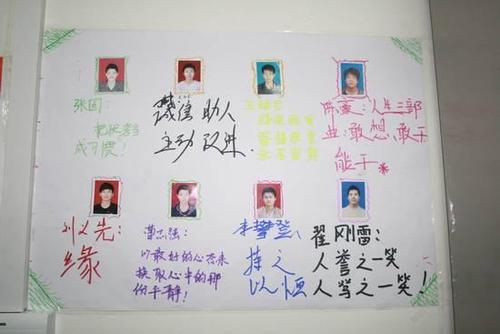 张固：
把优秀当
成习惯！
诚信助人
主动改进
陈豪：人生三部
业：敢想、敢干
能干
刘义先：
缘
曹志强：
以最好的心态来
换取人心中的那
份平静！
李攀登：
持之
以恒
翟刚雷：
人誉之一笑
人骂之一笑！